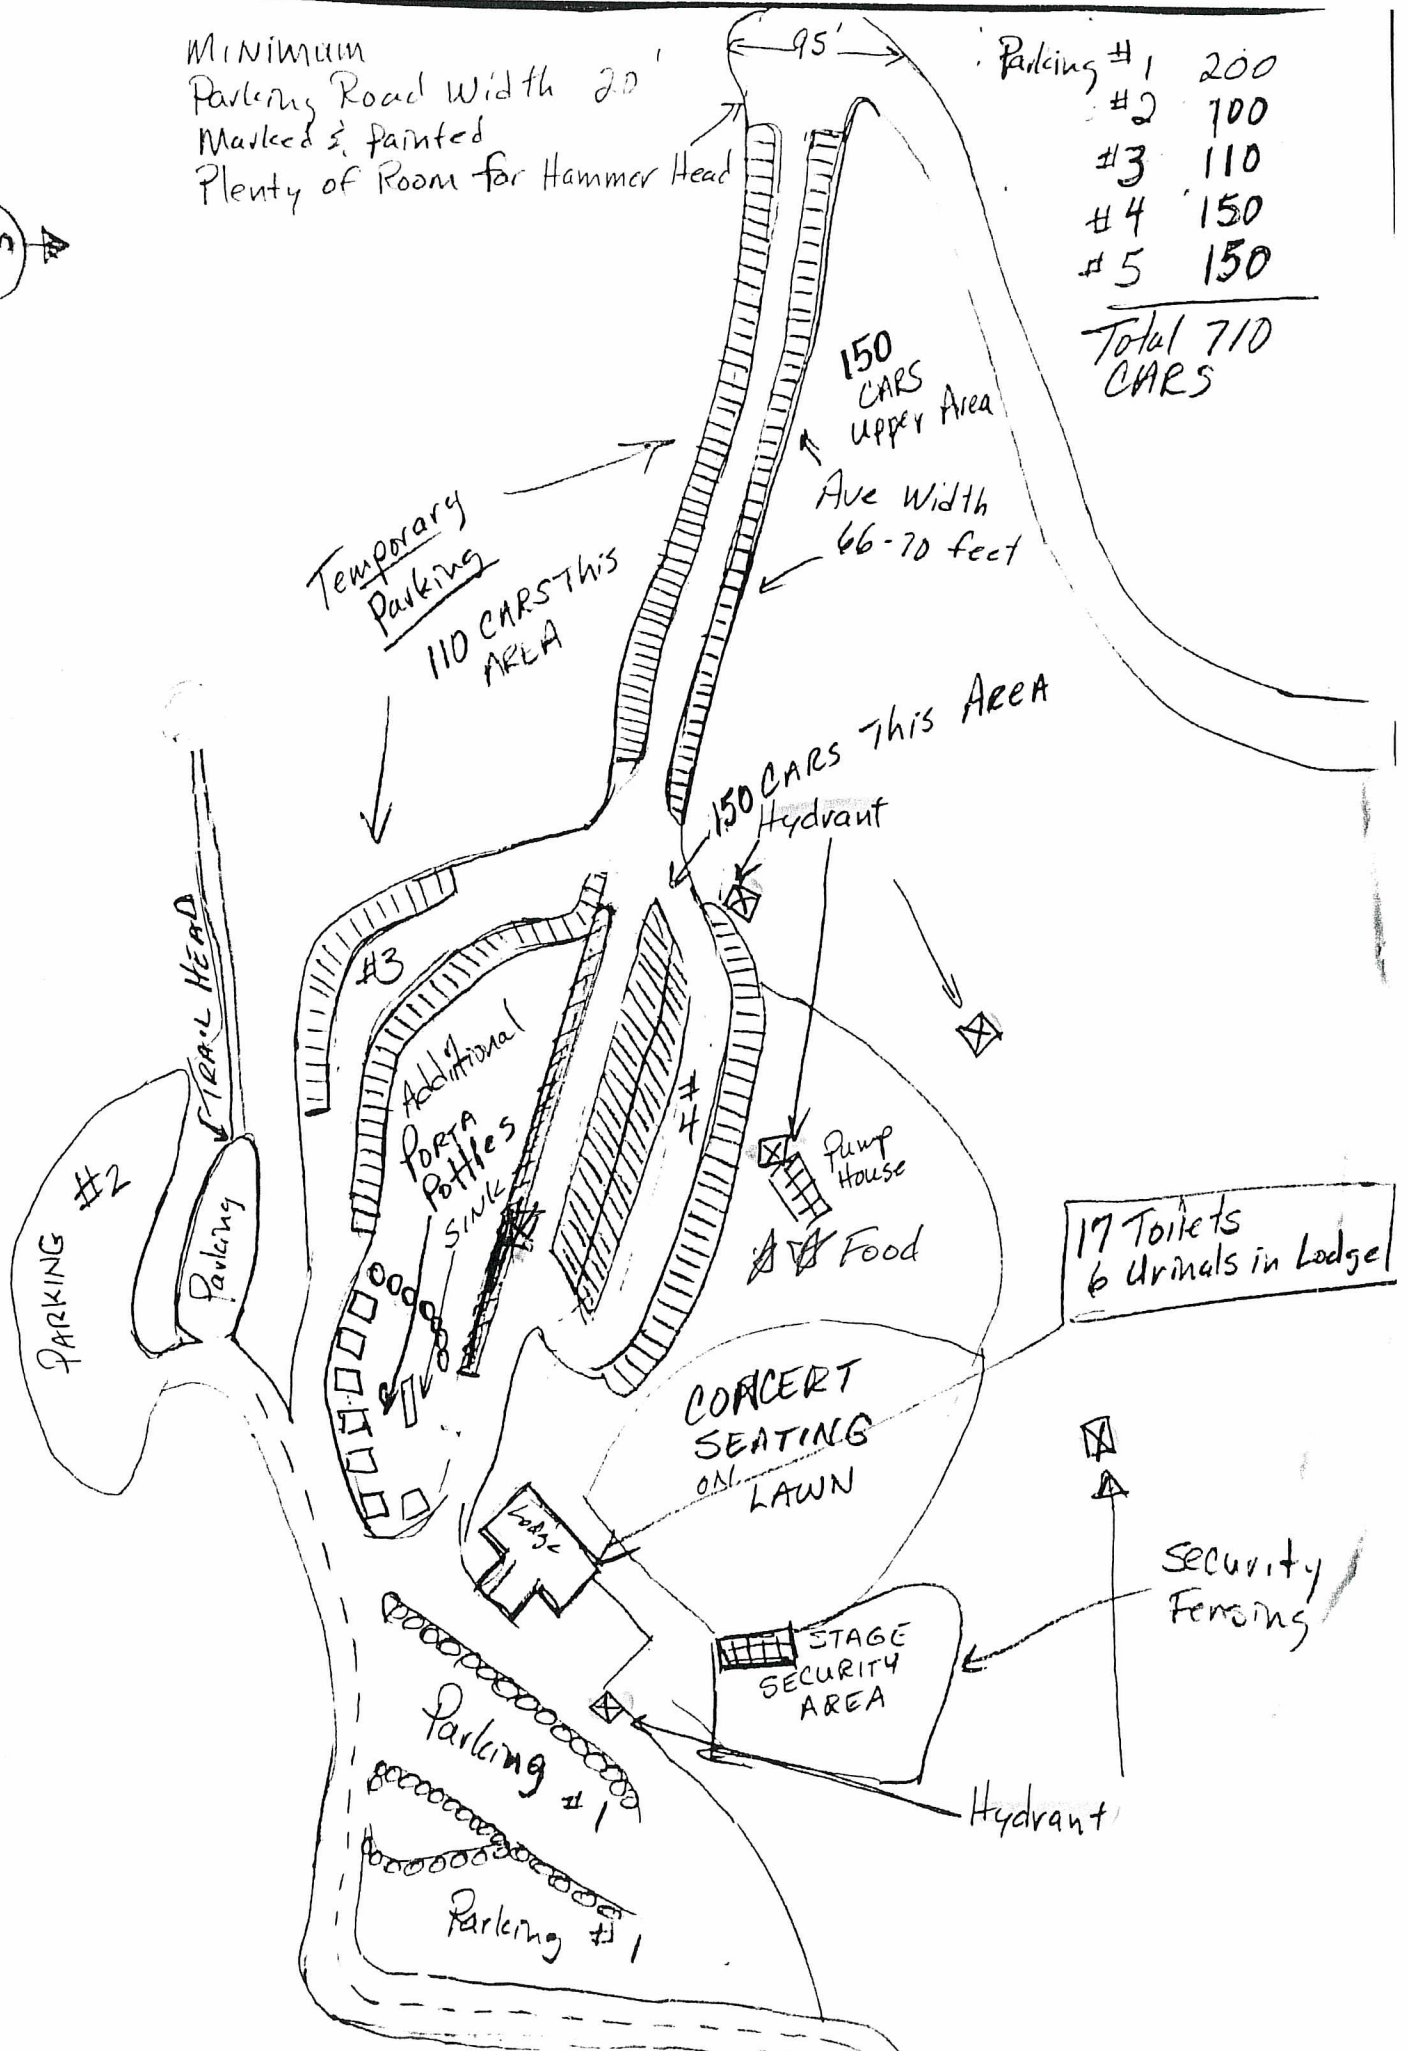 MINIMUM
Parking Road Width 20'
Marked & Painted
Plenty of Room for Hammer Head
95'
Parking #1 200
#2 100
#3 110
#4 150
#5 150
Total 710
CARS
150
CARS
Upper Area
Ave Width
66-70 feet
Temporary
Parking
110 CARS This
AREA
150 CARS This AREA
Hydrant
TRAIL HEAD
#3
Additional
PORTA
Potties
SINK
#4
Pump
House
Food
PARKING #2
Parking
17 Toilets
6 Urinals in Lodge
CONCERT
SEATING
ON
LAWN
Lodge
Security
Fencing
STAGE
SECURITY
AREA
Parking
#1
Hydrant
Parking #1